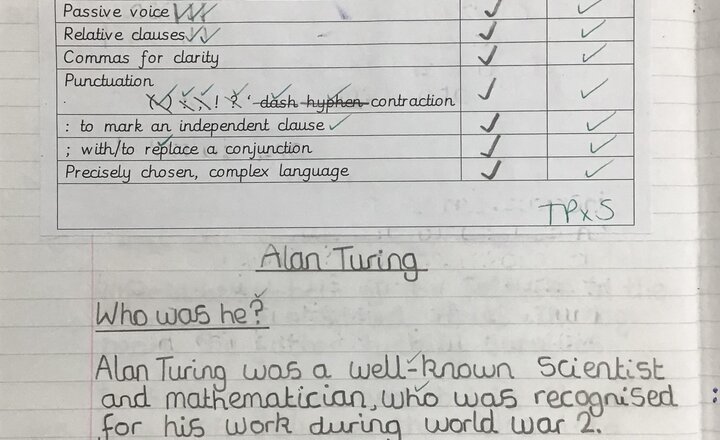 Passive voice
Relative clauses
Commas for clarity
Punctuation
! ? ' dash hyphen contraction
: to mark an independent clause
; with/to replace a conjunction
Precisely chosen, complex language
TPx5
Alan Turing
Who was he?
Alan Turing was a well-known scientist
and mathematician, who was recognised :
for his work during world war 2.